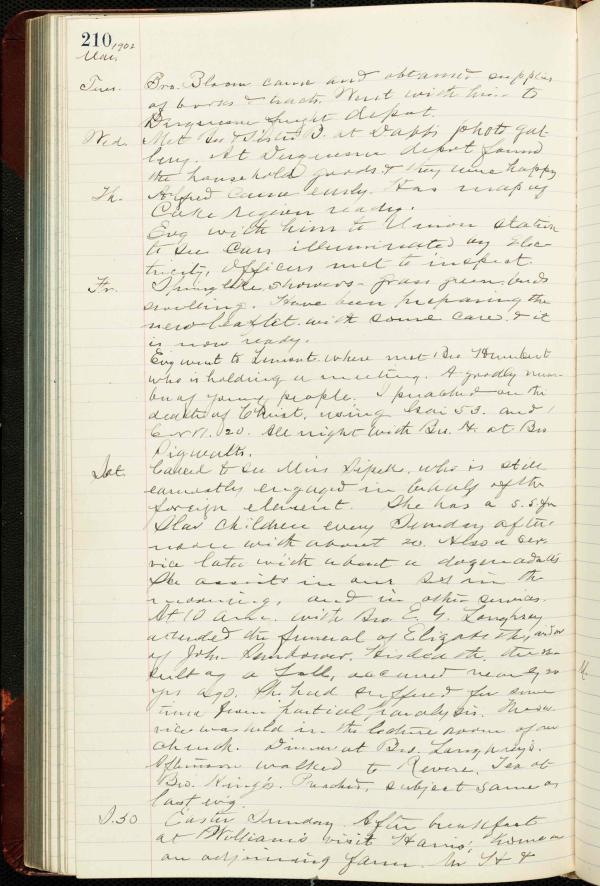 210 1902
Mar.
Tues. Bro. Bloom came and obtained supplies
of books & tracts. Went with him to
Duquesne freight depot.
Wed. Met Bro & Sister B. at Dabbs photo gal-
lery. At Duquesne depot found
the household goods & they were happy
Th. Alfred came early. Has map of
Coke Region ready.
Evg with him to Union Station
to see cars illuminated by Elec-
tricity, Officers met to inspect
Fr. Springlike, showers - grass green, buds
swelling. Have been preparing the
new leaflet with some care, & it
is now ready.
Evg went to Lemont where met Bro Humbert
who is holding a meeting. A goodly num-
ber of young people. I preached on the
death of Christ, using Isai 53. and 1
20. All night with Bro. H. at Bro
Sat. Called to see Miss who is still
earnestly engaged in behalf of the
foreign element. She has a S.S. for
Slav Children every Sunday after-
noon with about 20. Also a ser-
vice later with about a dozen adults
She assists in our SS in the
morning, and in other services.
At 10 a.m. with Bro. E. G. Longhrey
attended the funeral of Elizabeth, widow
of John His death, the re-
sult of a fall, occurred nearly 20
yrs ago. She had suffered for some
time from partial paralysis. The ser-
vice was held in the lecture room of our
church. Dinner at Bro. Longhrey's.
Afternoon walked to Revere. Tea at
Bro. King's. Preached, subject same as
last evg.
S. 30 Easter Sunday. After breakfast
at Williams visit Harris', home on
an adjoining farm. Mr H &